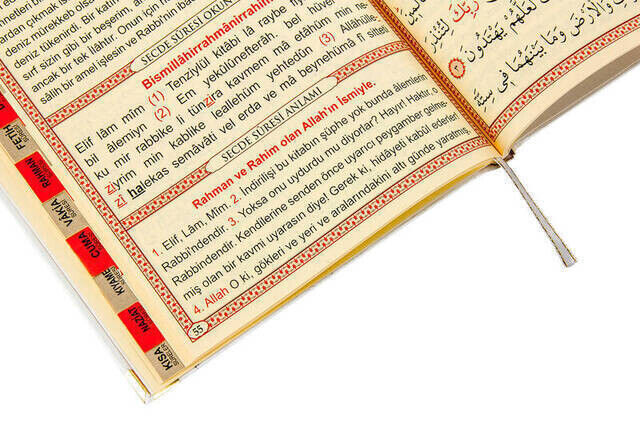 deniz mürekkep olsa
deniz tükenirdi. Bir katı
sırf sizin gibi bir beşerim, an
ancak bir tek ilâhtır. Onun için h
sâlih bir amel işlesin ve Rabbin'in ibad
SECDE SÛRESİ OKUN
Bismillâhirrahmânirrahîm
Elif lâm mîm (1) Tenziylül kitâbi lâ raybe
bil âlemiyn (2) Em yekûlûnefterâh. bel h
ku mir rabbike li tünzira kavmem mâ etâhüm min ne
ziyrim min kablike leallehüm yehtedûn (3) Allâhülle
zî halekas semâvâti vel erda ve mâ beynehümâ fî sitteti
SECDE SÛRESİ ANLAMI
Rahman ve Rahim olan Allah'ın İsmiyle.
1. Elif, Lâm, Mîm. 2. İndirilişi bu kitabın şüphe yok bunda âlemlerin
Rabbi'ndendir. 3. Yoksa onu uydurdu mu diyorlar? Hayır! Haktır, o
Rabbindendir. Kendilerine senden önce uyarıcı peygamber gelme-
miş olan bir kavmi uyarasın diye! Gerek ki, hidâyeti kabûl ederler!
4. Allah O ki, gökleri ve yeri ve aralarındakini altı günde yaratmış,
55
رَبِّكَ لِتُنْذِرَ
لَعَلَّهُمْ يَهْتَدُونَ
وَالْاَرْضَ وَمَا بَيْنَهُمَا فِي سِتَّةِ
FETİH
SÛRESİ
RAHMAN
SÛRESİ
VAKIA
SÛRESİ
CUMA
SÛRESİ
KIYAME
SÛRESİ
NAZİAT
SÛRESİ
KISA
SÛRELER